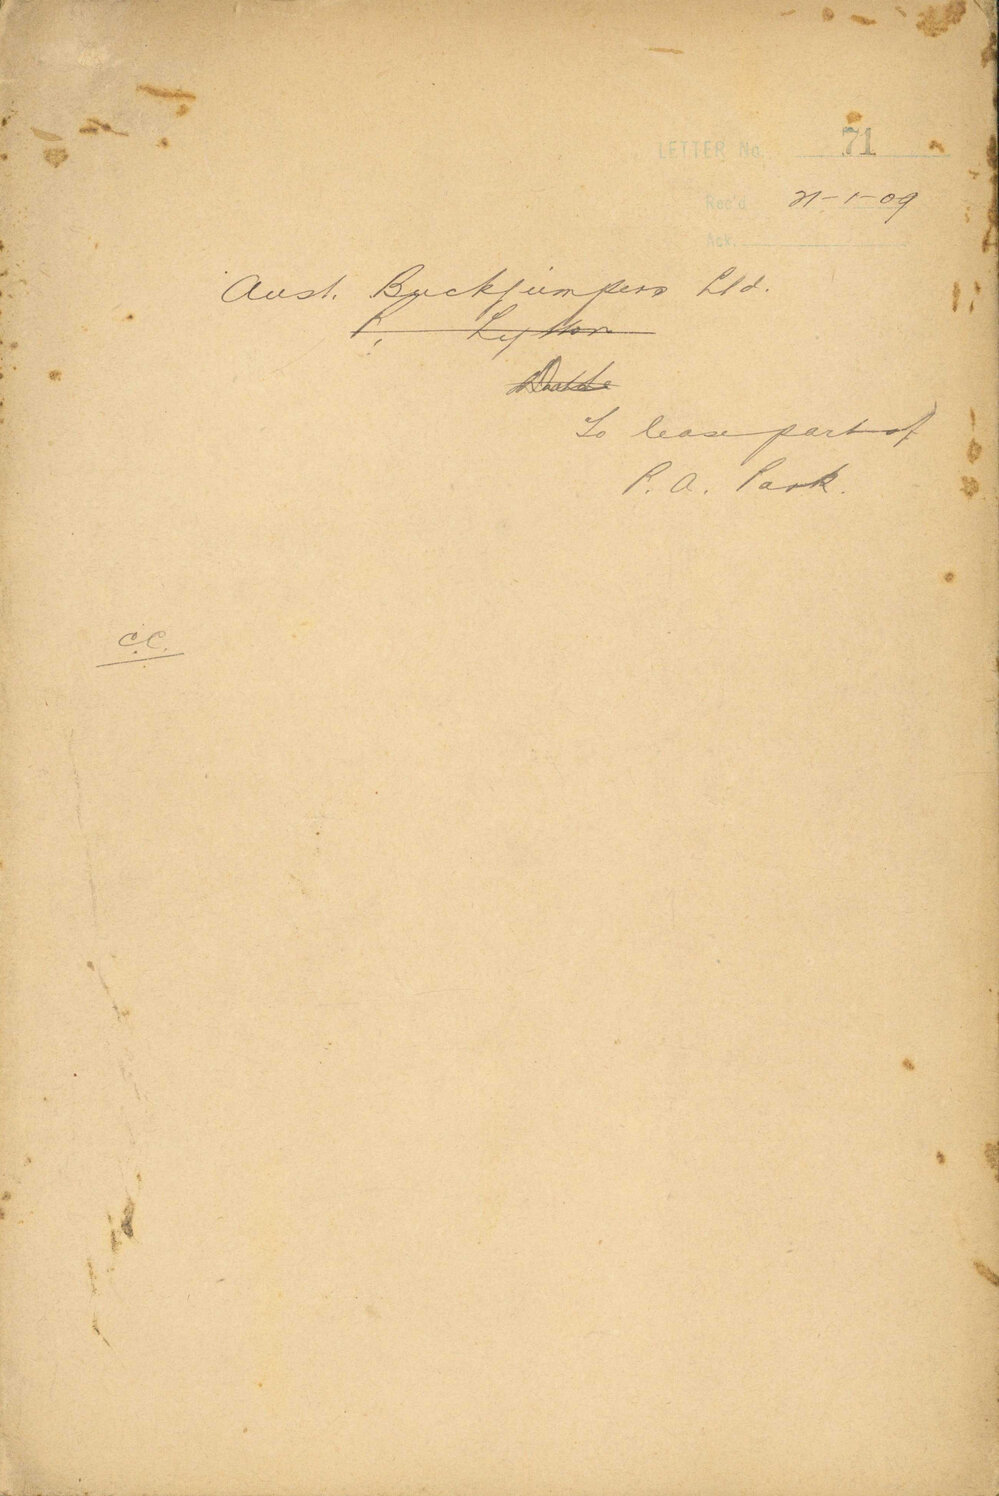 LETTER No. 71
Rec'd 21-1-09
Ack.
Aust. Buckjumpers Ltd.
P. Lytton
To lease part of
P. A. Park.
C.C.